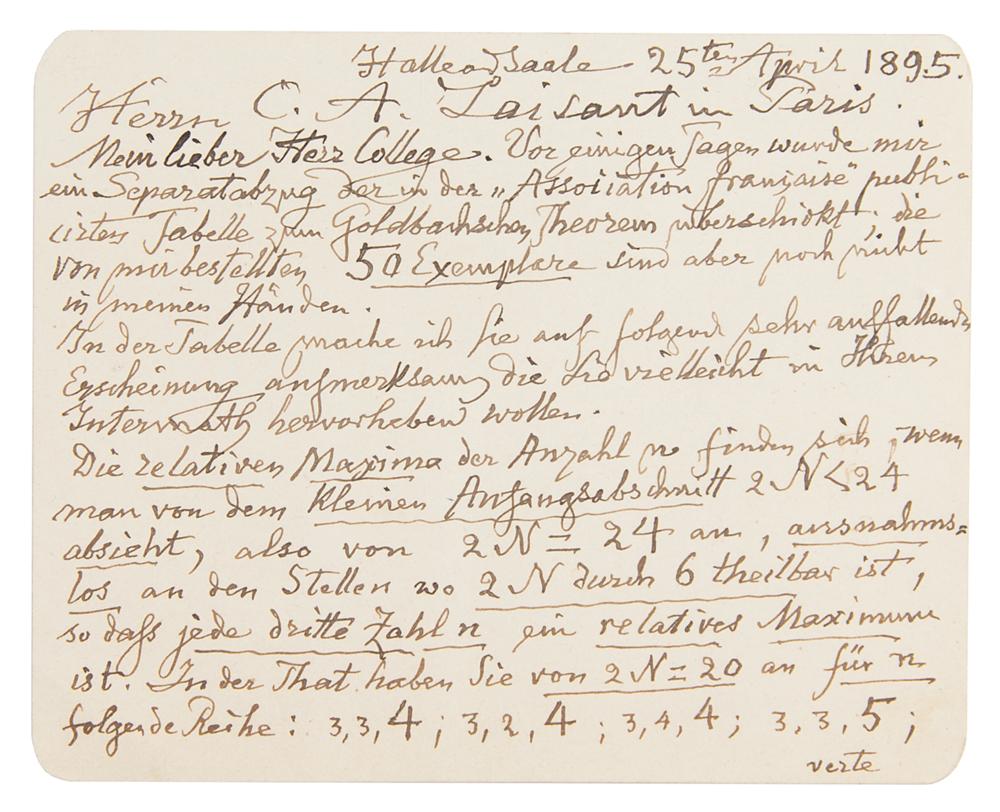 Halle a d Saale 25ten April 1895.
Herrn C. A. Laisant in Paris.
Mein lieber Herr College. Vor einigen Tagen wurde mir
ein Separatabzug der in der „Association française" publi-
cirten Tabelle zum Goldbachschen Theorem überschickt; die
von mir bestellten 50 Exemplare sind aber noch nicht
in meinen Händen.
In der Tabelle mache ich Sie auf folgende sehr auffallende
Erscheinung aufmerksam, die Sie vielleicht in Ihrem
hervorheben wollen.
Die relativen Maxima der Anzahl n finden sich, wenn
man von dem kleinen Anfangsabschnitt 2N<24
absieht, also von 2N=24 an, ausnahms=
los an den Stellen wo 2N durch 6 theilbar ist,
so daß jede dritte Zahl n ein relatives Maximum
ist. In der That haben Sie von 2N=20 an für n
folgende Reihe: 3,3,4; 3,2,4; 3,4,4; 3,3,5;
verte